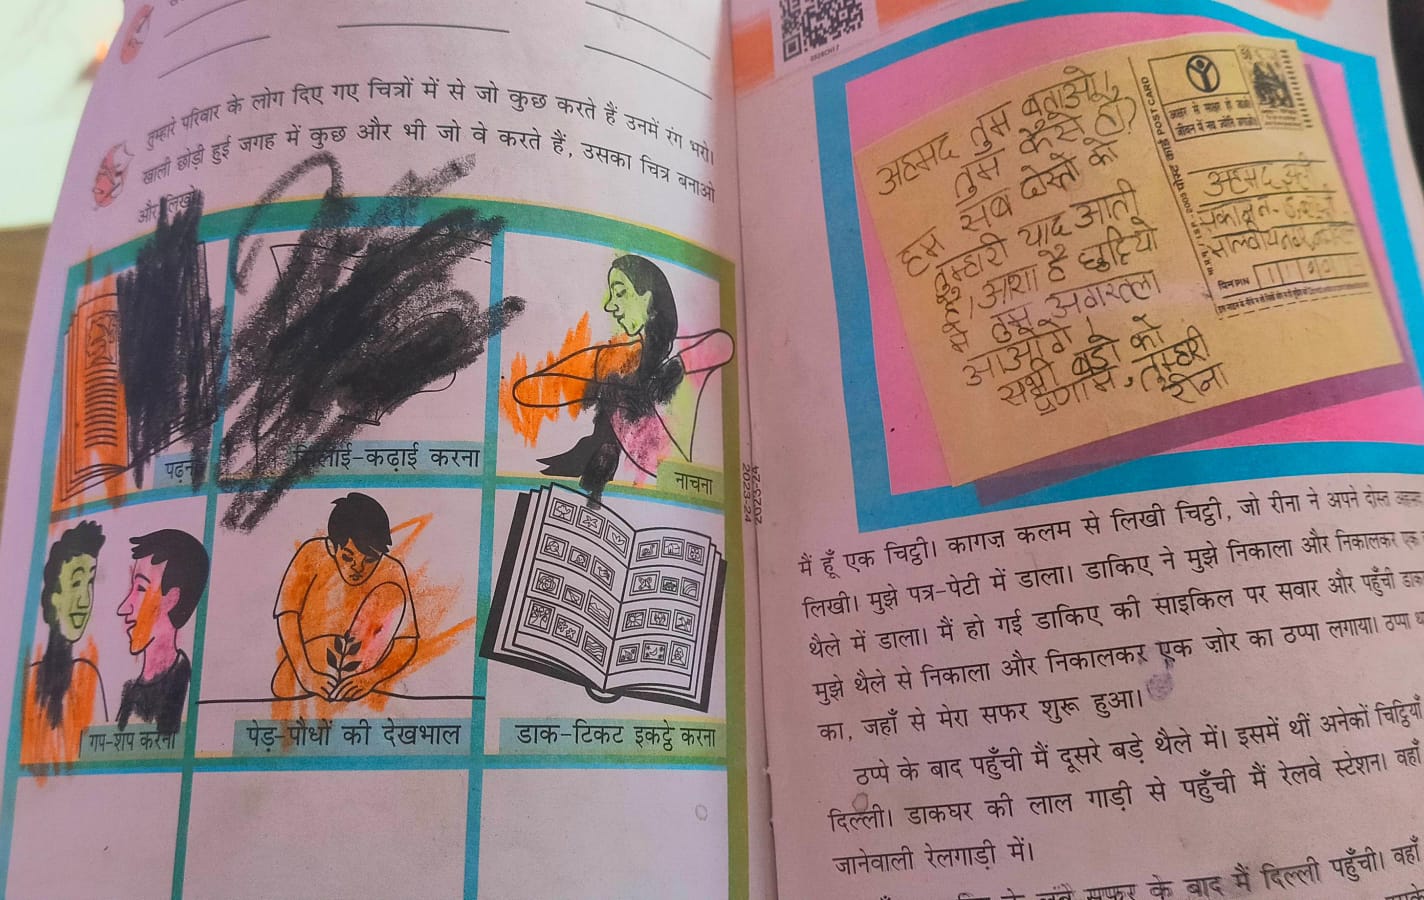 तुम्हारे परिवार के लोग दिए गए चित्रों में से जो कुछ करते हैं उनमें रंग भरो।
खाली छोड़ी हुई जगह में कुछ और भी जो वे करते हैं, उसका चित्र बनाओ
और लिखो
पढ़ना
सिलाई-कढ़ाई करना
नाचना
गप-शप करना
पेड़-पौधों की देखभाल
डाक-टिकट इकट्ठे करना
2023-24
अहमद तुम बताओ,
तुम कैसे हो?
हम सब दोस्तों को
तुम्हारी याद आती
है, आशा है छुट्टियों
में तुम अगरतला
आओगे।
सभी बड़ों को
प्रणाम, तुम्हारी
रीना
POST CARD
अहमद अली
पिन PIN
मैं हूँ एक चिट्ठी। कागज़ कलम से लिखी चिट्ठी, जो रीना ने अपने दोस्त
लिखी। मुझे पत्र-पेटी में डाला। डाकिए ने मुझे निकाला और निकालकर एक
थैले में डाला। मैं हो गई डाकिए की साइकिल पर सवार और पहुँची
मुझे थैले से निकाला और निकालकर एक ज़ोर का ठप्पा लगाया। ठप्पा
का, जहाँ से मेरा सफर शुरू हुआ।
ठप्पे के बाद पहुँची मैं दूसरे बड़े थैले में। इसमें थीं अनेकों चिट्ठियाँ
दिल्ली। डाकघर की लाल गाड़ी से पहुँची मैं रेलवे स्टेशन। वहाँ
जानेवाली रेलगाड़ी में।
सफर के बाद मैं दिल्ली पहुँची। वहाँ